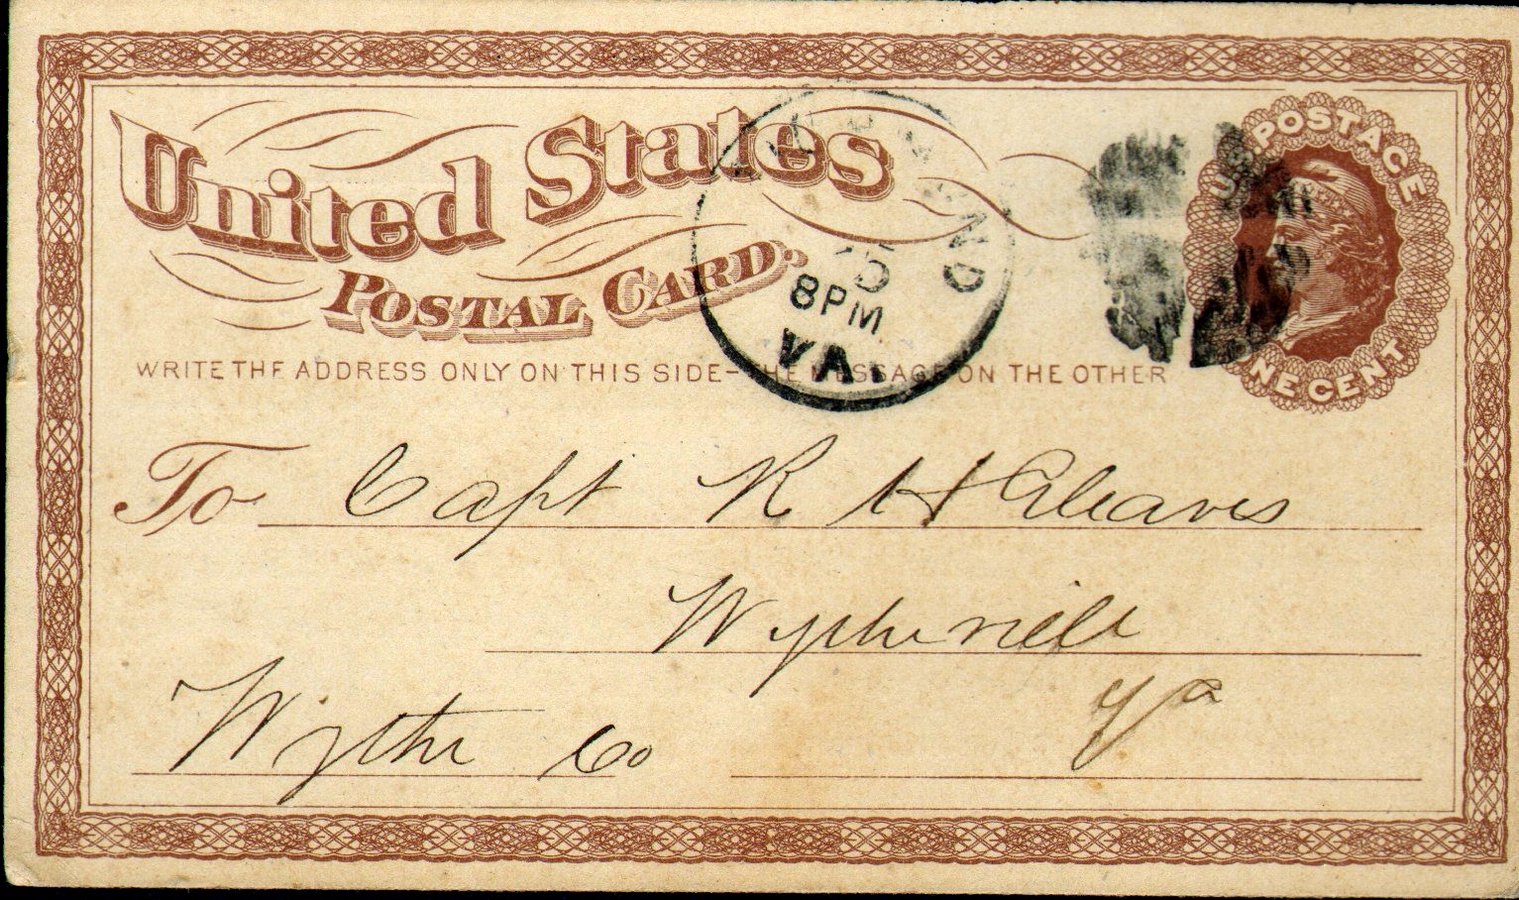 United States
POSTAL CARD.
U.S. POSTAGE
ONE CENT
15
8 PM
VA.
WRITE THE ADDRESS ONLY ON THIS SIDE - THE MESSAGE ON THE OTHER
To Capt R H Gleaves
Wytheville
Va
Wythe Co